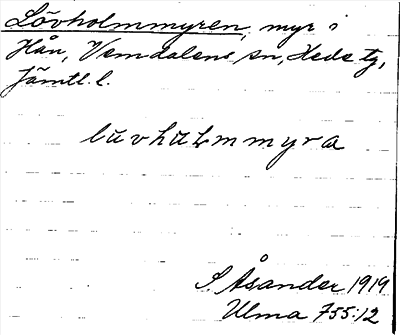 Lövholmmyren, myr i
Hån, Vemdalens sn, Heds tg,
Jämtl. l.
lüvhüLmmyra
S. Åsander 1919
Ulma 755:12